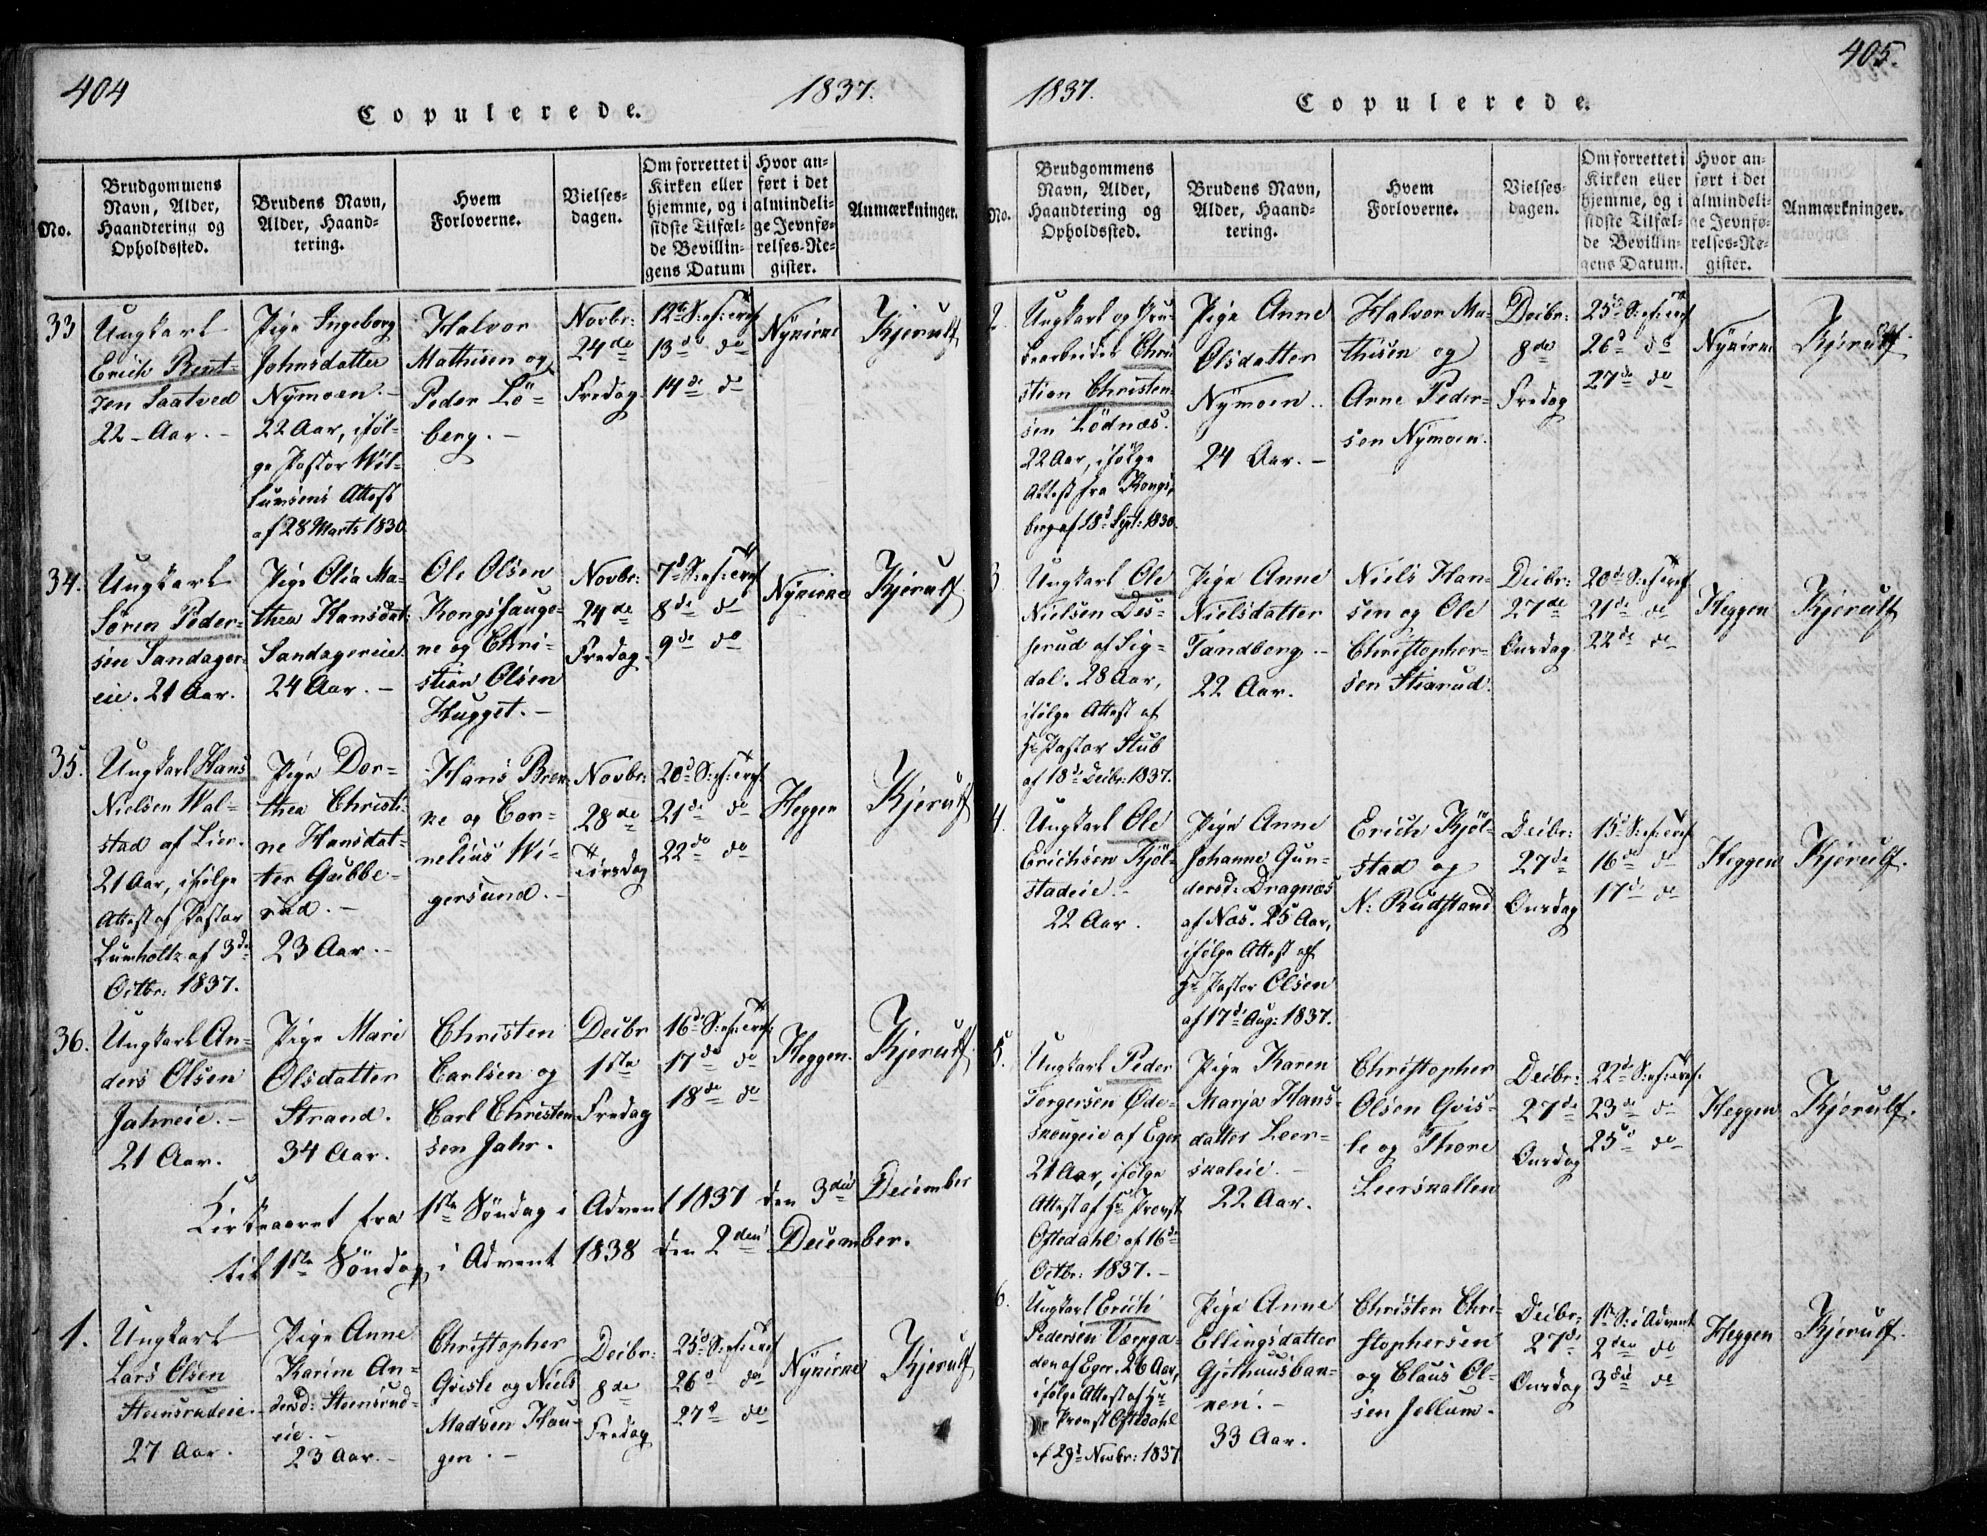 404
Copulerede.
1837.
No.
Brudgommens
Navn, Alder,
Haandtering og
Opholdssted.
Brudens Navn,
Alder, Haand-
tering.
Hvem
Forloverne.
Vielses-
dagen.
Om forrettet i
Kirken eller
hjemme, og i
sidste Tilfæl-
de Bevillin-
gens Datum
Hvor an-
ført i det
almindeli-
ge Jevnfø-
relses-Re-
gister.
Anmærkninger.
33
Ungkarl
Erich Bent-
zen Saatved
22-Aar.-
Pige Ingeborg
Johnsdatter
Nÿmoen.-
22 Aar, iføl-
ge Pastor
Attest
af 28 Marts 1830
Halvor
Mathisen og
Peder Lö-
berg.-
Novbr:
24de
Fredag
12te S: ef: Tref
13de do
14de do
Nÿkirke
Kjerulf
34.
Ungkarl
Sören Peder-
sen Sandager-
eie. 21 Aar.
Pige Olia Ma-
thea Hansdat:
Sandagereie
24 Aar.-
Ole Olsen
Kongshauge-
ne og Chri-
stian Olsen
Hugget.-
Novbr:
24de
Fredag.
7de S: ef: Tref
8de do
9de do
Nÿkirke
Kjerulf
35.
Ungkarl Hans
Nielsen Wal-
stad af Lier.
21 Aar, ifølge
Attest af Pastor
Lumholtz af 3de
Octbr: 1837.
Pige Dor-
thea Christi-
ne Hansdat-
ter Gubbe-
rud.-
23 Aar.-
Hans Bren-
ne og Cor-
nelius Wi-
gersund.-
Novbr:
28de
Tirsdag
20de S: ef: Tref.
21de do
22de do
Heggen
Kjerulf
36.
Ungkarl An-
ders Olsen
Jahreie.-
21 Aar.
Pige Mari
Olsdatter
Strand.
34 Aar.
Christen
Carlsen og
Carl Christen-
sen Jahr.
Decbr
1ste
Fredag
16de S: ef: Tref:
17de do
18de do
Heggen.
Kjerulf
Kirkeaaret fra 1ste Söndag i Advent 1837 den 3die December
til 1ste Söndag i Advent 1838 den 2den December.
1.
Ungkarl
Lars Olsen
Steensrudeie.
27 Aar.
Pige Anne
Karine An-
dersd: Steensrud-
eie.-
23 Aar.-
Christopher
Gvisle og Niels
Madsen Hau-
gen.-
Decbr:
8de
Fredag
25de S: ef: Tref
26de do
27de do
Nÿkirke
Kjerulf
405.
1837.
Copulerede.
No.
Brudgommens
Navn, Alder,
Haandtering og
Opholdssted.
Brudens Navn,
Alder, Haand-
tering.
Hvem
Forloverne.
Vielses-
dagen.
Om forrettet i
Kirken eller
hjemme, og i
sidste Tilfæl-
de Bevillin-
gens Datum.
Hvor an-
ført i det
almindeli-
ge Jevnfø-
relses-Re-
gister.
Anmærkninger.
2.
Ungkarl og Gru-
bearbeider Chri-
stian Christen-
sen Lödnæs.
22 Aar, ifølge
Attest fra Kongs-
berg af 18de Sept: 1830.
Pige Anne
Olsdatter
Nÿmoen.
24 Aar.-
Halvor Ma-
thisen og
Arne Peder-
sen Nÿmoen.
Decbr:
8de
Fredag
25de S: ef: Tref
26de do
27de do
Nÿkirke
Kjerulf.
3
Ungkarl Ole
Nielsen Des-
serud af Sig-
dal. 28 Aar,
ifølge Attest af
Hr Pastor Stub
af 18de Decbr: 1837.
Pige Anne
Nielsdatter
Tandberg.-
22 Aar.
Niels Han-
sen og Ole
Christopher-
sen Stixrud.
Decbr:
27de
Onsdag
20de S: ef: Tref
21de do
22de do
Heggen
Kjerulf
4.
Ungkarl Ole
Erichsen Kjöl-
stadeie.-
22 Aar.
Pige Anne
Johanne Gun-
dersd: Dragnæs
af Næs. 25 Aar,
ifølge Attest af
Hr Pastor Olsen
af 17de Aug: 1837.
Erich Kjöl-
stad og
N: Rudstand
Decbr:
27de
Onsdag
15de S: ef: Tref
16de do
17de do
Heggen
Kjerulf.
5.
Ungkarl Peder
Torgersen Øde-
skougeie af Eger
21 Aar, ifølge
Attest af Hr Provst
Oftedahl af 16de
Octbr: 1837.-
Pige Karen
Marja Hans-
datter Leer-
skaleie.-
22 Aar.
Christopher
Olsen Gvis-
le og Thore
Leerskallen
Decbr:
27de
Onsdag
22de S: ef: Tref.
23de do
25de do
Heggen
Kjerulf.
6.
Ungkarl Erich
Pedersen Værpga-
den af Eger. 26 Aar,
ifølge Attest af Hr
Provst Oftedahl
af 29de Novbr: 1837.
Pige Anne
Ellingsdatter
Gjethuusbak-
ken.-
33 Aar.
Christen Chri-
stophersen
og Claus Ol-
sen Jellum.
Decbr:
27de
Onsdag
1ste S: i Advent
2den do
3die do
Heggen
Kjerulf.